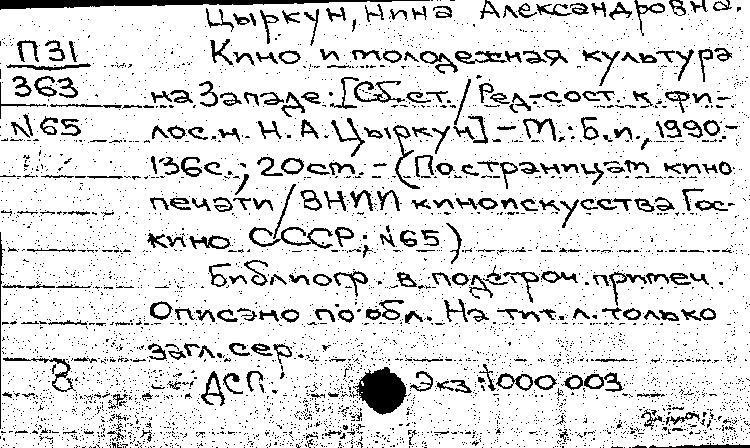 Цыркун, Нина Александровна.
П31 Кино и молодежная культура
363 на Западе: [Сб. ст. / Ред.-сост. к. фи-
N65 лос. н. Н. А. Цыркун] - М.: Б. и., 1990.-
136с.; 20см. - (По страницам кино
печати / ВНИИ киноискусства Гос-
кино СССР; N65)
Библиогр. в подстроч. примеч.
Описано по обл. На тит. л. только
загл. сер.
ДСП. Экз: 000 003